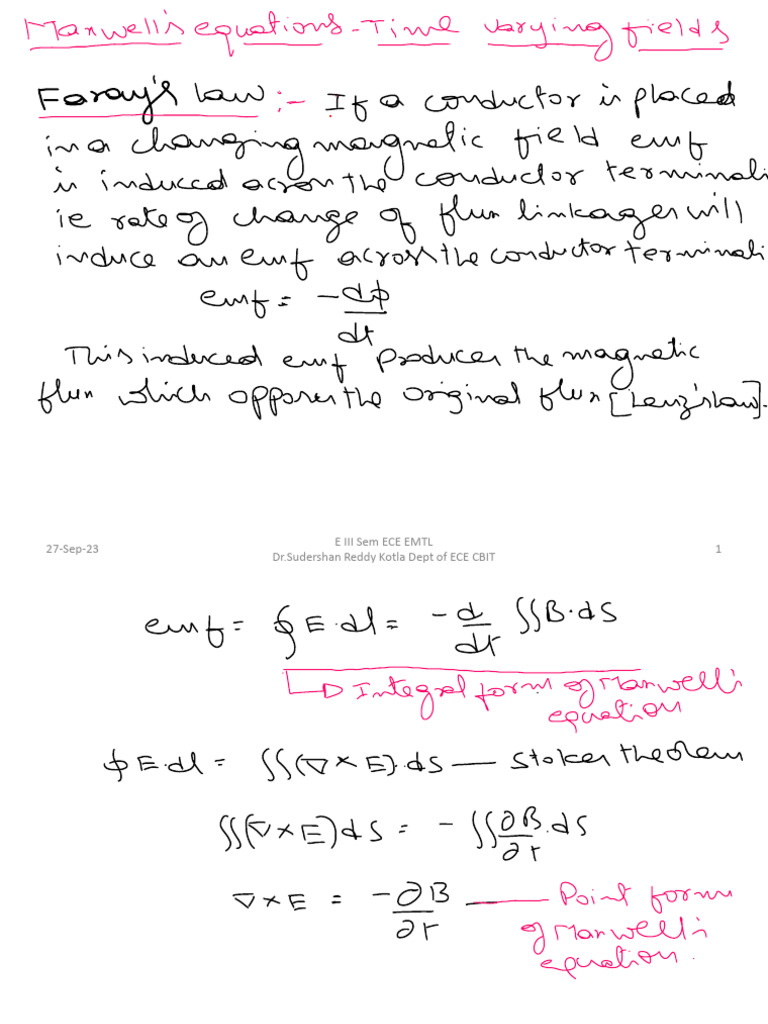 Maxwell's equations - Time varying fields
Faray's law :- If a conductor is placed
in a changing magnetic field emf
is induced across the conductor terminals
ie rate of change of flux linkages will
induce an emf across the conductor terminals
emf = -dϕ/dt
This induced emf produces the magnetic
flux which opposes the original flux [Lenz's law].
E III Sem ECE EMTL
27-Sep-23 Dr.Sudershan Reddy Kotla Dept of ECE CBIT 1
emf = ∮E·dl = -d/dt ∬B·ds
Integral form of Maxwell's
equation
∮E·dl = ∬(∇×E)·ds — Stokes theorem
∬(∇×E)ds = -∬∂B/∂t·ds
∇×E = -∂B/∂t — Point form
of Maxwell's
equation.